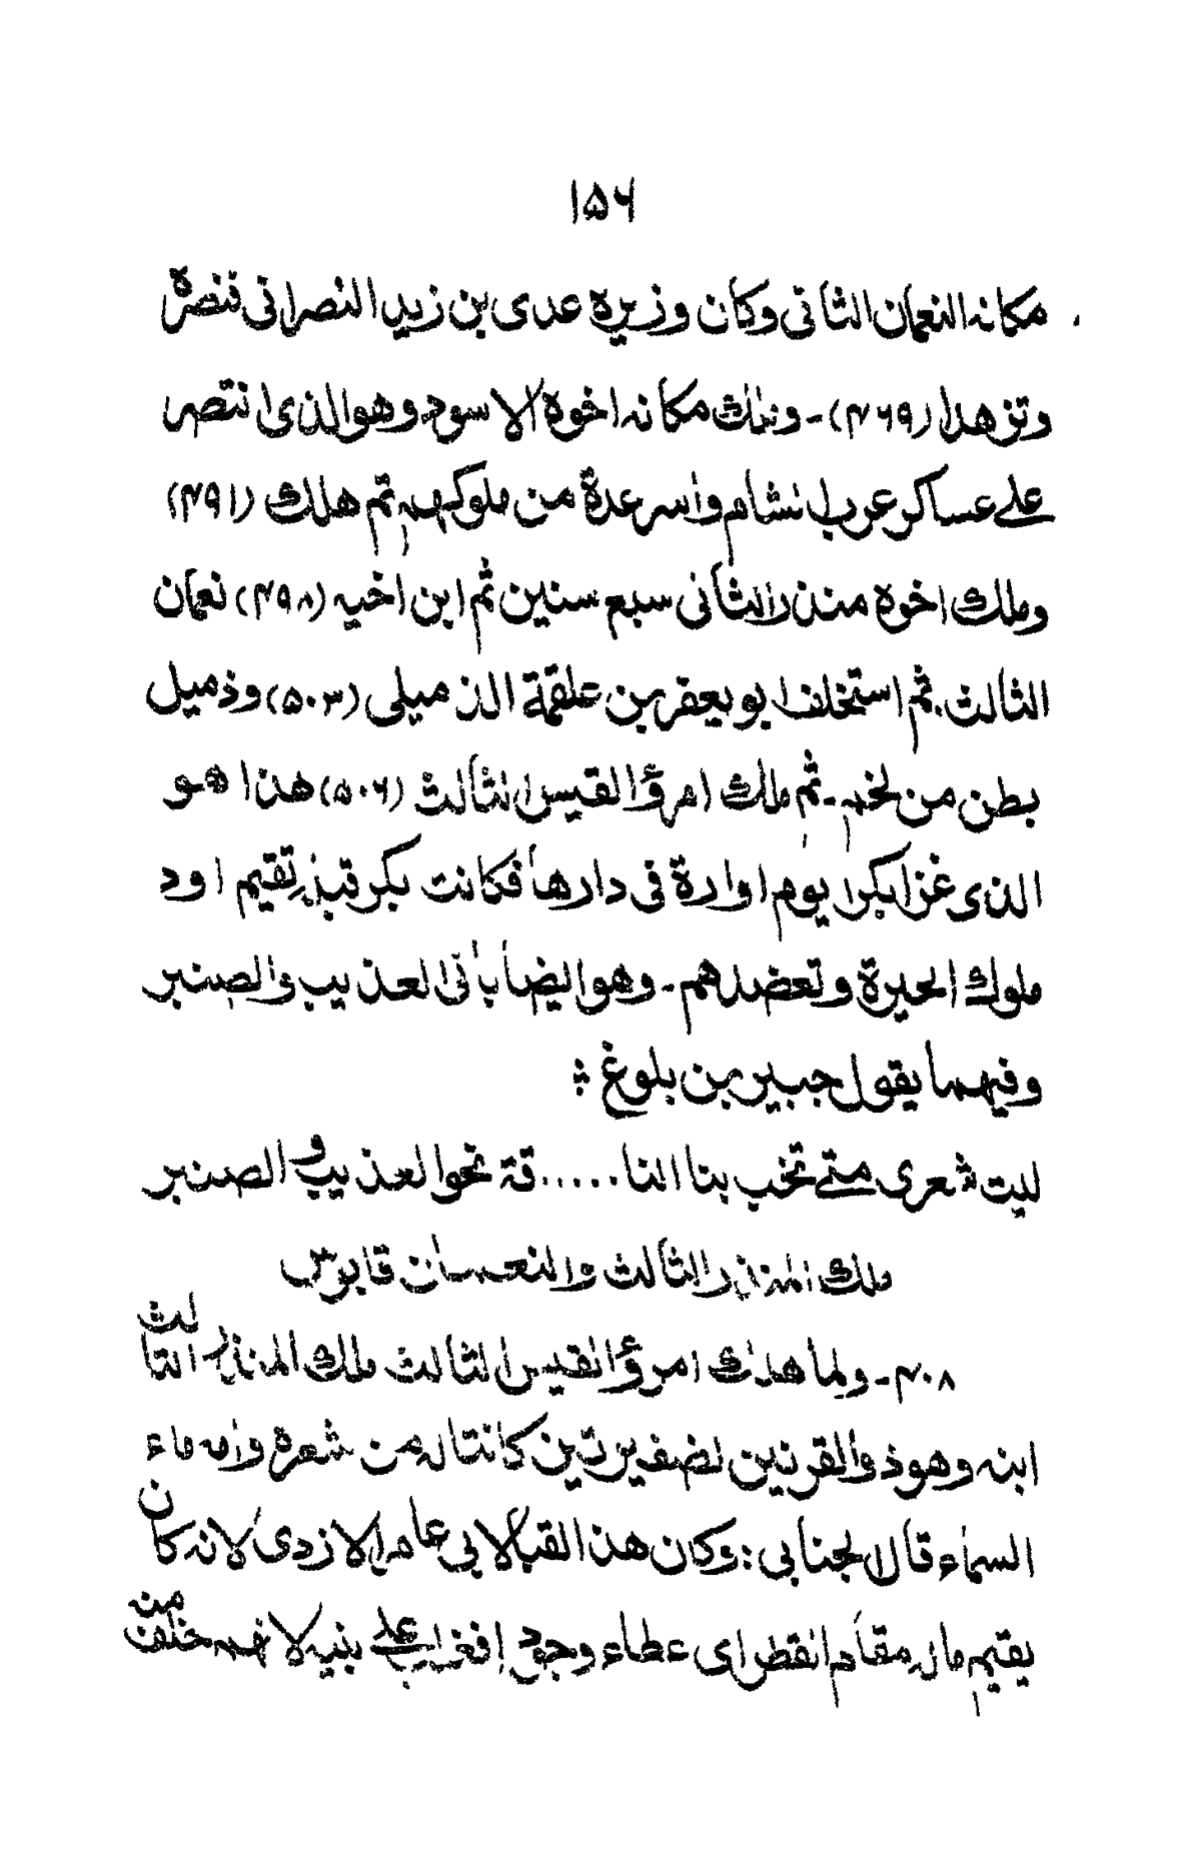 ۱۵۶
مکانہ النعمان الثانی وکان وزیرہ عدی بن زید النصرانی فنصرہ
وتزھد (۴۶۹) - وملک مکانہ اخوہ الاسود وھوالذی انتصر
علے عساکر عرب الشام واسر عدۃ من ملوکھم ثم ھلک (۴۹۱)
وملک اخوہ منذر الثانی سبع سنین ثم ابن اخیہ (۴۹۸) نعمان
الثالث. ثم استخلف ابو یعفر بن علقمۃ الذمیلی (۵۰۳) وذمیل
بطن من لخم - ثم ملک امرؤ القیس الثالث (۵۰۶) ھذا ھو
الذی غزا بکرا یوم اوارۃ فی دارھا فکانت بکر قبلہ تقیم اود
ملوک الحیرۃ وتعضدھم - وھو ایضا بانی العذیب والصنبر
وفیھما یقول جبیر بن بلوغ :
لیت شعری متے تخب بنا النا.....قۃ نحوالعذیب والصنبر
ملک المنذر الثالث والنعمان قابوس
۴۰۸ - ولما ھلک امرؤ القیس الثالث ملک المنذر الثالث
ابنہ وھوذوالقرنین لضفیرتین کانتا لہ من شعرہ وامہ ماء
السماء قال الجنابی : وکان ھذا القب لابی عامر الازدی لانہ کان
یقیم مالہ مقام القطر ای عطاء وجودا فغلب علے بنیہ لانھم خلف من